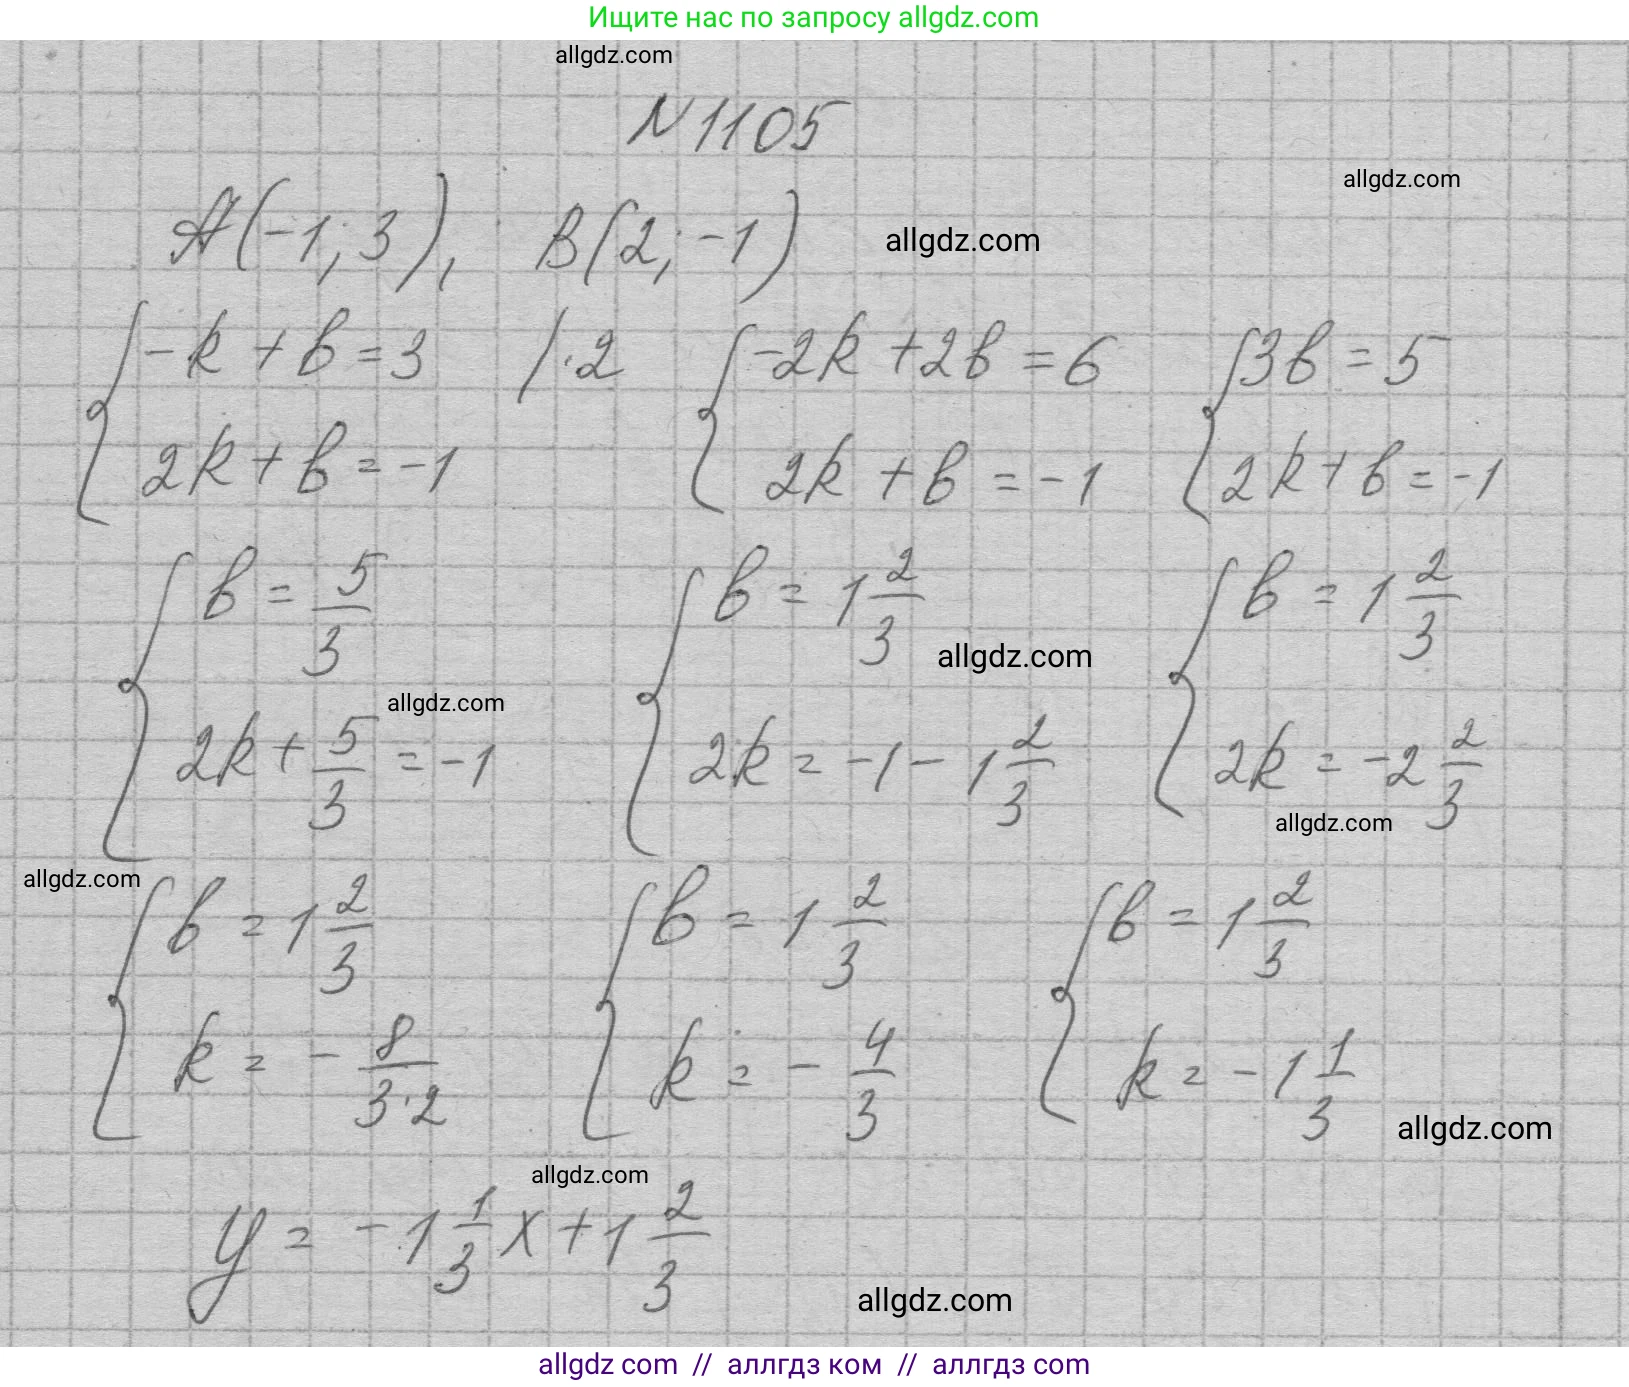 Ищите нас по запросу allgdz.com
allgdz.com
N 1105
allgdz.com
A(-1; 3), B(2; -1)
allgdz.com
{-k + b = 3 / ·2 {-2k + 2b = 6 {3b = 5
2k + b = -1 2k + b = -1 2k + b = -1
{b = 5/3 {b = 1 2/3 {b = 1 2/3
allgdz.com
allgdz.com
2k + 5/3 = -1 2k = -1 - 1 2/3 2k = -2 2/3
allgdz.com
allgdz.com
{b = 1 2/3 {b = 1 2/3 {b = 1 2/3
k = - 8/3·2 k = - 4/3 k = -1 1/3
allgdz.com
allgdz.com
y = -1 1/3 x + 1 2/3
allgdz.com
allgdz com // аллгдз ком // аллгдз com